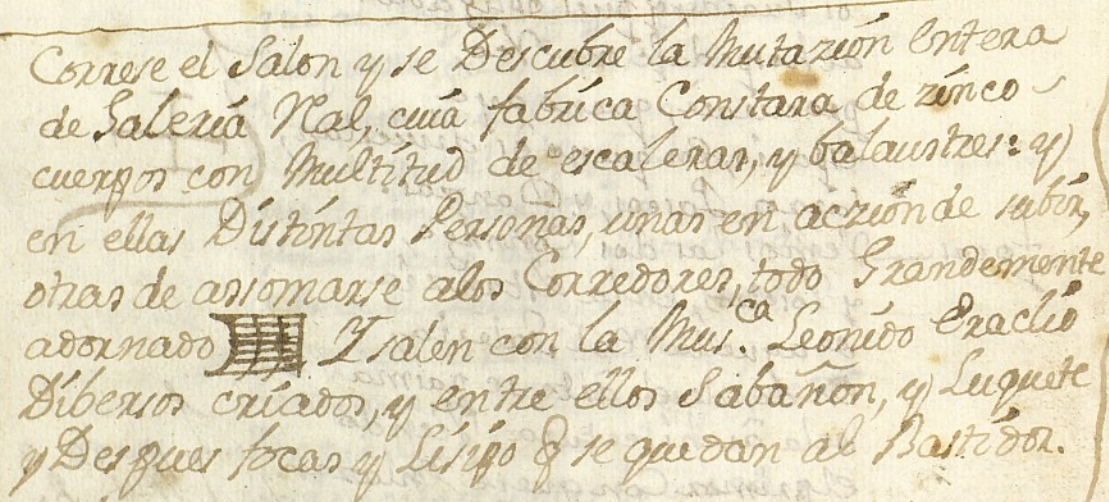 Correse el Salon y se Descubre la Mutazión entera
de Galeria Rl, cuia fabrica Constara de zinco
cuerpos con Multitud de escaleras, y balaustres: y
en ellas Distintas Personas, unas en aczion de subir,
otras de assomarse alos Corredores, todo Grandemente
adornado Y salen con la Mus.ca Leonido Eraclio
Dibersos criados, y entre ellos Sabañon, y Luquete
y Despues focas y Lisipo q se quedan al Bastidor.